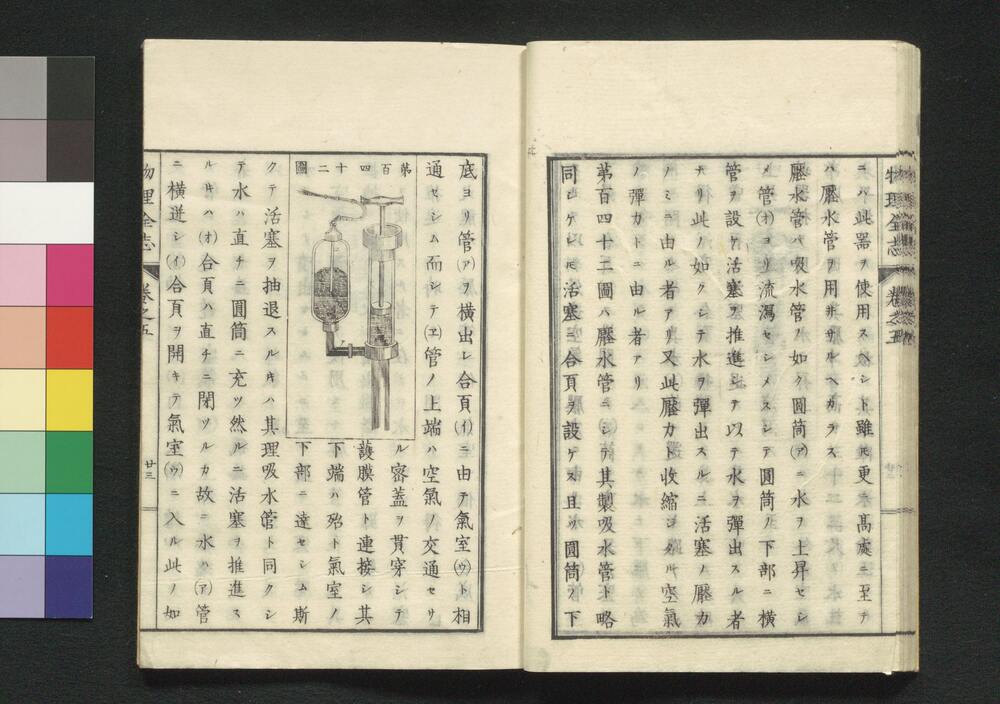 ニハ此器ヲ使用スヘシト雖𪜈更ニ髙處ニ至テ
ハ壓水管ヲ用井サルヘカラス
壓水管ハ吸水管ノ如ク圓筒㋐ニ水ヲ上昇セシ
メ管㋔ヨリ流瀉セシメスシテ圓筒ノ下部ニ橫
管ヲ設ケ活塞ヲ推進シテ以テ水ヲ彈出スル者
ナリ此ノ如クシテ水ヲ彈出スルニ活塞ノ壓力
ノミニ由ル者アリ又此壓力ト收縮シタル空氣
ノ彈力トニ由ル者アリ
第百四十二圖ハ壓水管ニシテ其製吸水管ト略
同シケレ𪜈活塞ニ合頁ヲ設ケス且ツ圓筒ノ下
物理全志
卷之五
底ヨリ管㋐ヲ橫出シ合頁㋑ニ由テ氣室㋒ト相
通セシム而シテ㋓管ノ上端ハ空氣ノ交通セサ
第百四十二圖
ル密蓋ヲ貫穿シテ
護膜管ト連接シ其
下端ハ殆ト氣室ノ
下部ニ達セシム斯
クテ活塞ヲ抽退スル𪜈ハ其理吸水管ト同クシ
テ水ハ直チニ圓筒ニ充ツ然ルニ活塞ヲ推進ス
ル𪜈ハ㋔合頁ハ直チニ閉ツルカ故ニ水ハ㋐管
ニ橫逆シ㋑合頁ヲ開キテ氣室㋒ニ入ル此ノ如
物理全志
卷之五
廿三